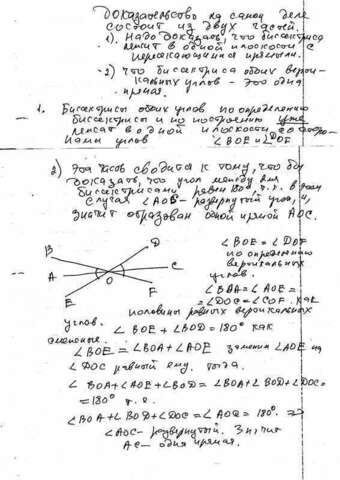 Доказательство на самом деле
состоит из двух частей.
1). Надо доказать, что биссектриса
лежит в одной плоскости с
пересекающимися прямыми.
2) что биссектриса обоих верти-
кальных углов - это одна
прямая.
1. Биссектрисы обоих углов по определению
биссектрисы и по построению уже
лежат в одной плоскости со сторо-
нами углов ∠BOE и ∠DOF
2) Эта часть сводится к тому, что бы
доказать, что угол между
биссектрисами равен 180°, т.к. в этом
случае ∠AOC - развернутый угол, и,
значит образован одной прямой AOC.
B
D
A
C
O
E
F
∠BOE = ∠DOF
по определению
вертикальных
углов.
∠BOA = ∠AOE =
= ∠DOC = ∠COF. как
половины равных вертикальных
углов.
∠BOE + ∠BOD = 180° как
смежные.
∠BOE = ∠BOA + ∠AOE заменим ∠AOE на
∠DOC равный ему. тогда.
∠BOA + ∠AOE + ∠BOD = ∠BOA + ∠BOD + ∠DOC =
= 180° т.е.
∠BOA + ∠BOD + ∠DOC = ∠AOC = 180°. ⇒
∠AOC - развернутый. Значит
AC - одна прямая.